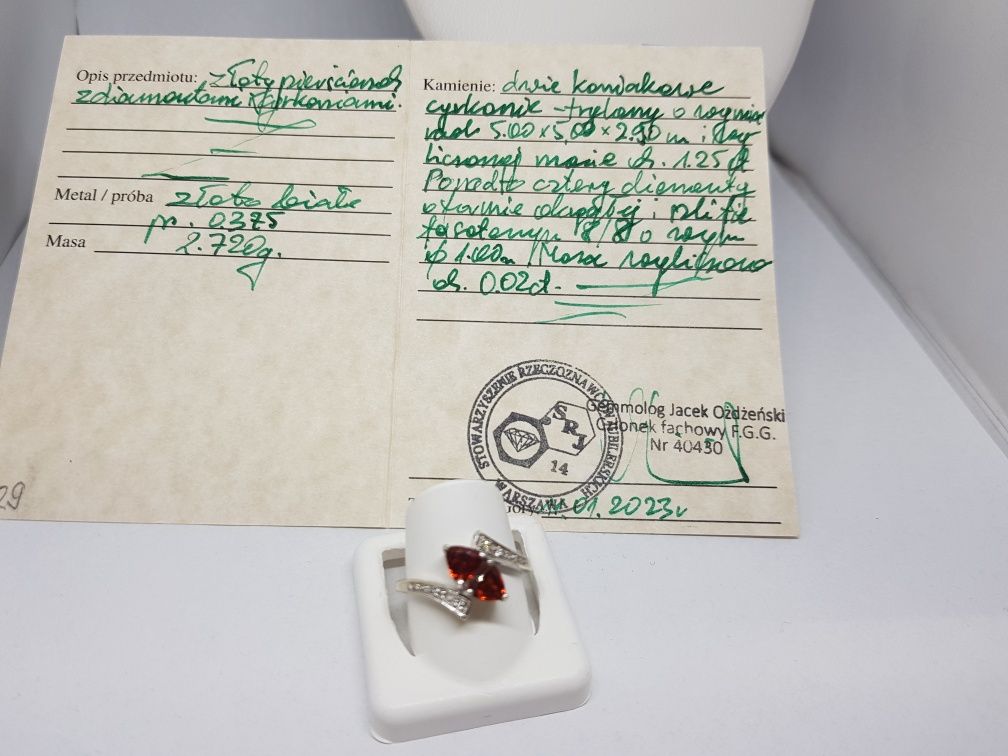 Opis przedmiotu: złoty pierścionek
z diamentami i cyrkoniami.
Metal / próba złoto białe
pr. 0.375
Masa 2.720g.
29
Kamienie: dwie koniakowe
cyrkonie - trylany o wymia
rach 5.00 x 5.00 x 2.90 m i wy
liczonej masie ok. 1.25 ct
Ponadto cztery diamenty
o formie okrągłej i szlifie
fasetowym 8/8 o wym
ф 1.00m / Masa wyliczona
ok. 0.02ct.-
STOWARZYSZENIE RZECZOZNAWCÓW JUBILERSKICH
SRJ
14
WARSZAWA
Gemmolog Jacek Ożdżeński
Członek fachowy F.G.G.
Nr 40430
01.2023r